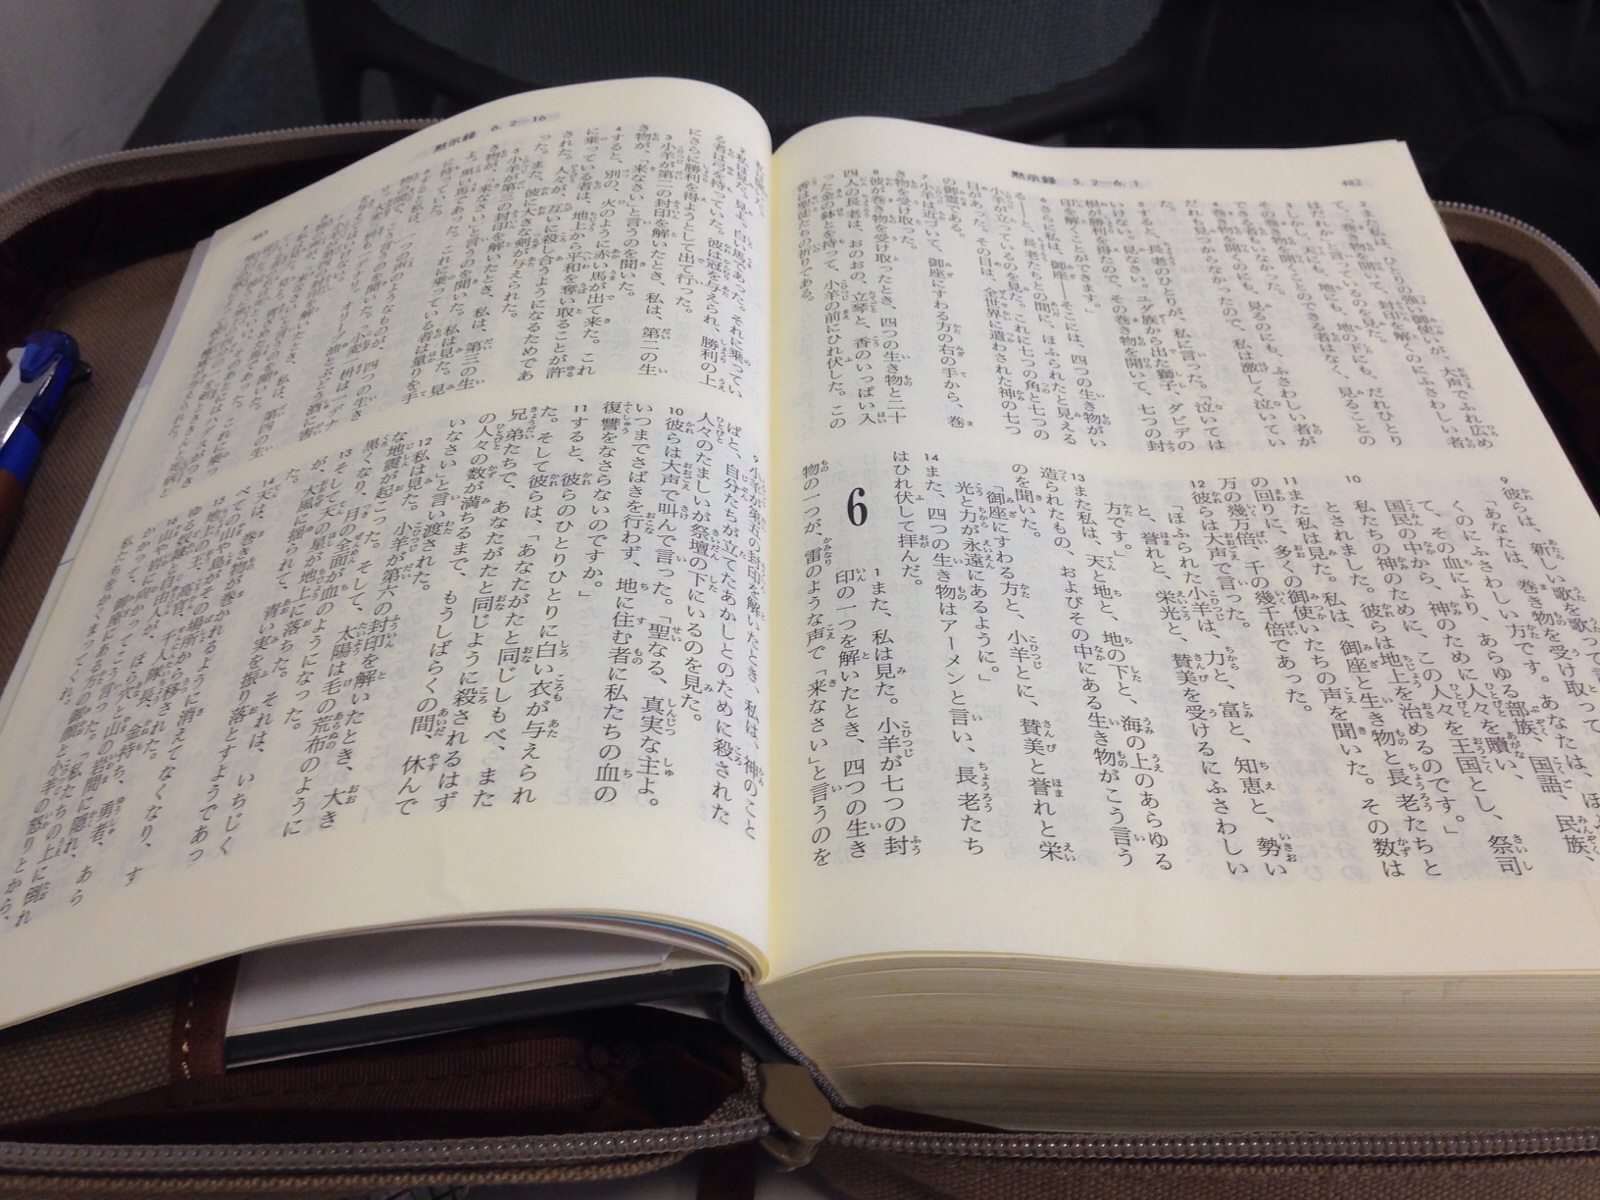 黙示録 5. 2—6. 1
482
2また私は、ひとりの強い御使いが、大声でふれ広め
て、「巻き物を開いて、封印を解くのにふさわしい者
はだれか」と言っているのを見た。
3しかし、天にも、地にも、地の下にも、だれひとり
その巻き物を開くことのできる者はなく、見ることの
できる者もいなかった。
4巻き物を開くのにも、見るのにも、ふさわしい者が
だれも見つからなかったので、私は激しく泣いてい
た。
5すると、長老のひとりが、私に言った。「泣いては
いけない。見なさい。ユダ族から出た獅子、ダビデの
根が勝利を得たので、その巻き物を開いて、七つの封
印を解くことができます。」
6さらに私は、御座——そこには、四つの生き物がい
る——と、長老たちとの間に、ほふられたと見える
小羊が立っているのを見た。これに七つの角と七つの
目があった。その目は、全世界に遣わされた神の七つ
の御霊である。
7小羊は近づいて、御座にすわる方の右の手から、巻
き物を受け取った。
8彼が巻き物を受け取ったとき、四つの生き物と二十
四人の長老は、おのおの、立琴と、香のいっぱい入
った金の鉢とを持って、小羊の前にひれ伏した。この
香は聖徒たちの祈りである。
9彼らは、新しい歌を歌って
「あなたは、巻き物を受け取って
くのにふさわしい方です。あなたは、ほ
て、その血により、あらゆる部族、国語、民族、
国民の中から、神のために人々を贖い、
10
私たちの神のために、この人々を王国とし、祭司
とされました。彼らは地上を治めるのです。」
11また私は見た。私は、御座と生き物と長老たちと
の回りに、多くの御使いたちの声を聞いた。その数は
万の幾万倍、千の幾千倍であった。
12彼らは大声で言った。
「ほふられた小羊は、力と、富と、知恵と、勢い
と、誉れと、栄光と、賛美を受けるにふさわしい
方です。」
13また私は、天と地と、地の下と、海の上のあらゆる
造られたもの、およびその中にある生き物がこう言う
のを聞いた。
「御座にすわる方と、小羊とに、賛美と誉れと栄
光と力が永遠にあるように。」
14また、四つの生き物はアーメンと言い、長老たち
はひれ伏して拝んだ。
6
1また、私は見た。小羊が七つの封
印の一つを解いたとき、四つの生き
物の一つが、雷のような声で「来なさい」と言うのを
黙示録 6. 2—16
483
2私は見た。見よ。白い馬であった。それに乗ってい
る者は弓を持っていた。彼は冠を与えられ、勝利の上
にさらに勝利を得ようとして出て行った。
3小羊が第二の封印を解いたとき、私は、第二の生
き物が、「来なさい」と言うのを聞いた。
4すると、別の、火のように赤い馬が出て来た。これ
に乗っている者は、地上から平和を奪い取ることが許
された。人々が、互いに殺し合うようになるためであ
った。また、彼に大きな剣が与えられた。
5小羊が第三の封印を解いたとき、私は、第三の生
き物が、「来なさい」と言うのを聞いた。私は見た。見
よ。黒い馬であった。これに乗っている者は量りを手
に持っていた。
9小羊が第五の封印を解いたとき、私は、神のこと
ばと、自分たちが立てたあかしとのために殺された
人々のたましいが祭壇の下にいるのを見た。
10彼らは大声で叫んで言った。「聖なる、真実な主よ。
いつまでさばきを行わず、地に住む者に私たちの血の
復讐をなさらないのですか。」
11すると、彼らのひとりひとりに白い衣が与えられ
た。そして彼らは、「あなたがたと同じしもべ、また
兄弟たちで、あなたがたと同じように殺されるはず
の人々の数が満ちるまで、もうしばらくの間、休んで
いなさい」と言い渡された。
12私は見た。小羊が第六の封印を解いたとき、大き
な地震が起こった。そして、太陽は毛の荒布のように
黒くなり、月の全面が血のようになった。
13そして天の星が地上に落ちた。それは、いちじく
が、大風に揺られて、青い実を振り落とすようであっ
た。
14天は、巻き物が巻かれるように消えてなくなり、す
べての山や島がその場所から移された。
15地上の王、高官、千人隊長、金持ち、勇者、あら
ゆる奴隷と自由人が、ほら穴と山の岩間に隠れ、
16山や岩に向かってこう言った。「私たちの上に倒れ
かかって、御座にある方の御顔と小羊の怒りとから、
私たちをかくまってくれ。